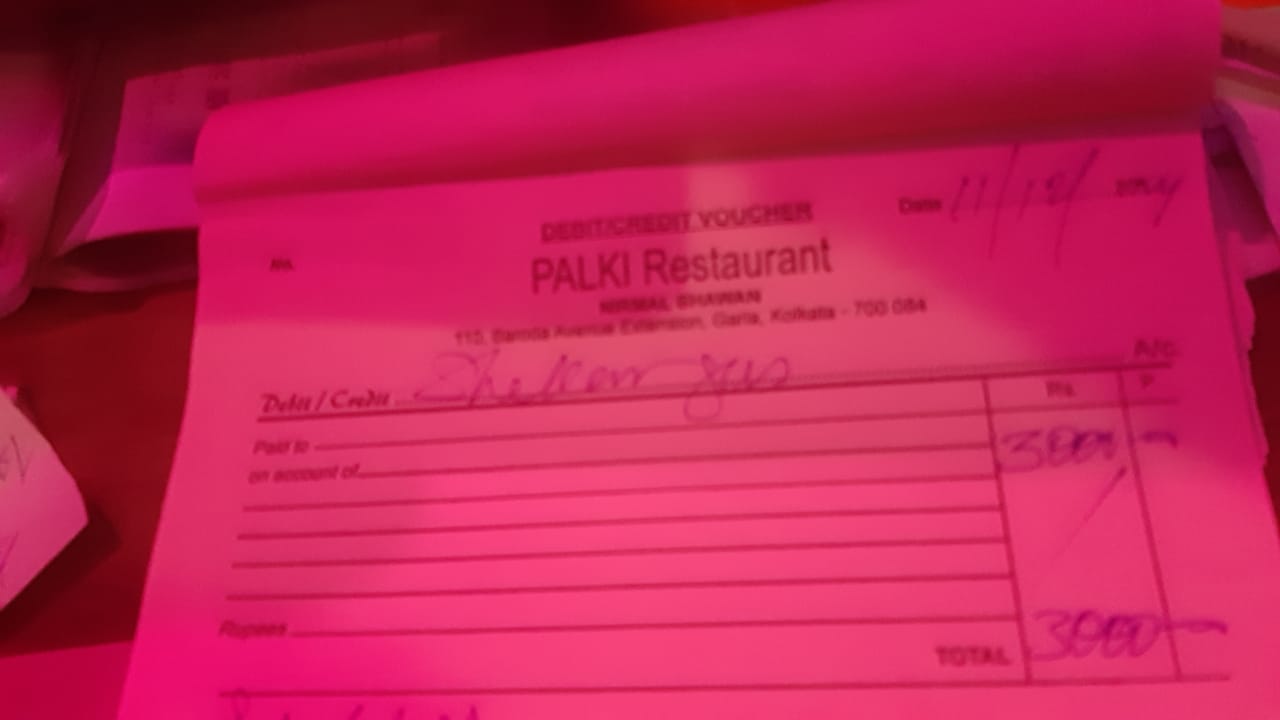 DEBIT/CREDIT VOUCHER
Date 11/12/2024
No.
PALKI Restaurant
NIRMAL BHAWAN
110, Baroda Avenue Extension, Garia, Kolkata - 700 084
A/c.
Debit / Credit
Rs. P
Paid to
3000/-
on account of
Rupees
TOTAL 3000/-